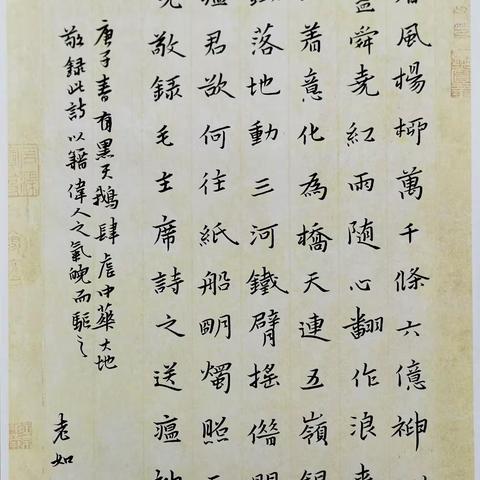 風楊柳萬千條六億神
盡舜堯紅雨隨心翻作浪
着意化為橋天連五嶺銀
落地動三河鐵臂搖借問
瘟君欲何往紙船明燭照
敬錄毛主席詩之送瘟神
庚子春有黑天鵝肆虐中華大地
敬錄此詩以籍偉人之氣魄而驅之
老如